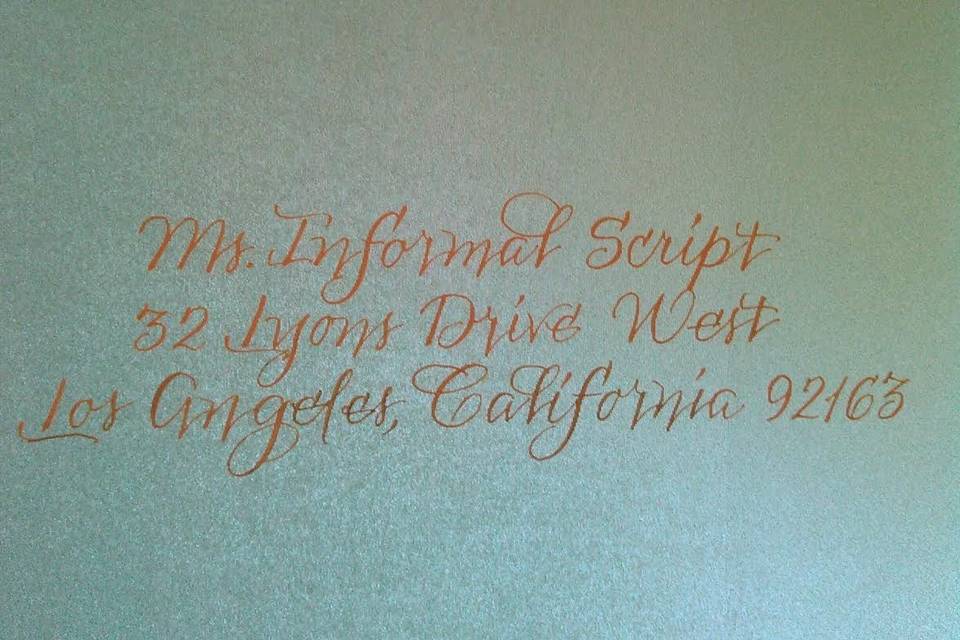 Ms. Informal Script
32 Lyons Drive West
Los Angeles, California 92163